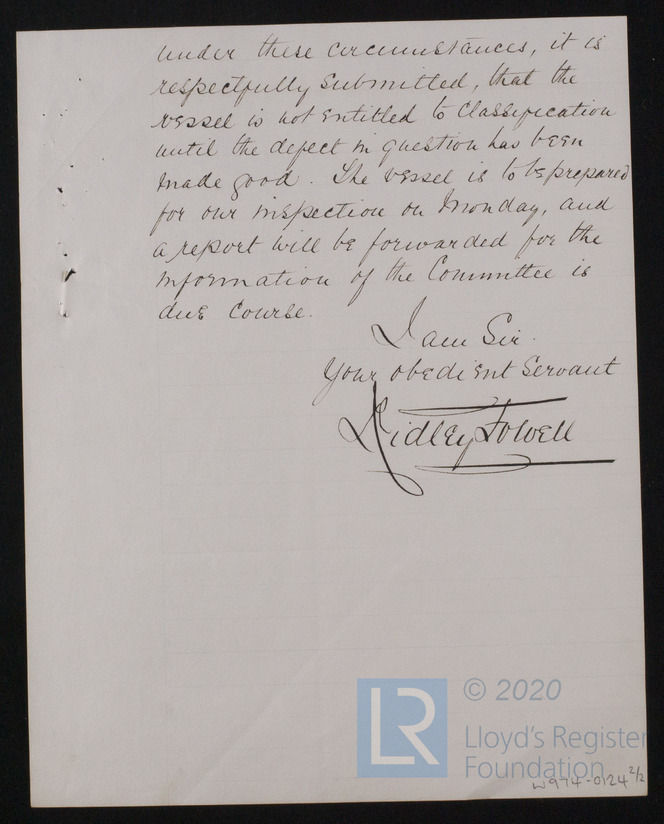 under these circumstances, it is
respectfully submitted, that the
vessel is not entitled to Classification
until the defect in question has been
made good. The vessel is to be prepared
for our inspection on Monday, and
a report will be forwarded for the
information of the Committee in
due course.
I am Sir.
Your obedient Servant
Ridley Fowell
© 2020
LR
Lloyd's Register
Foundation
W974-0124 2/2